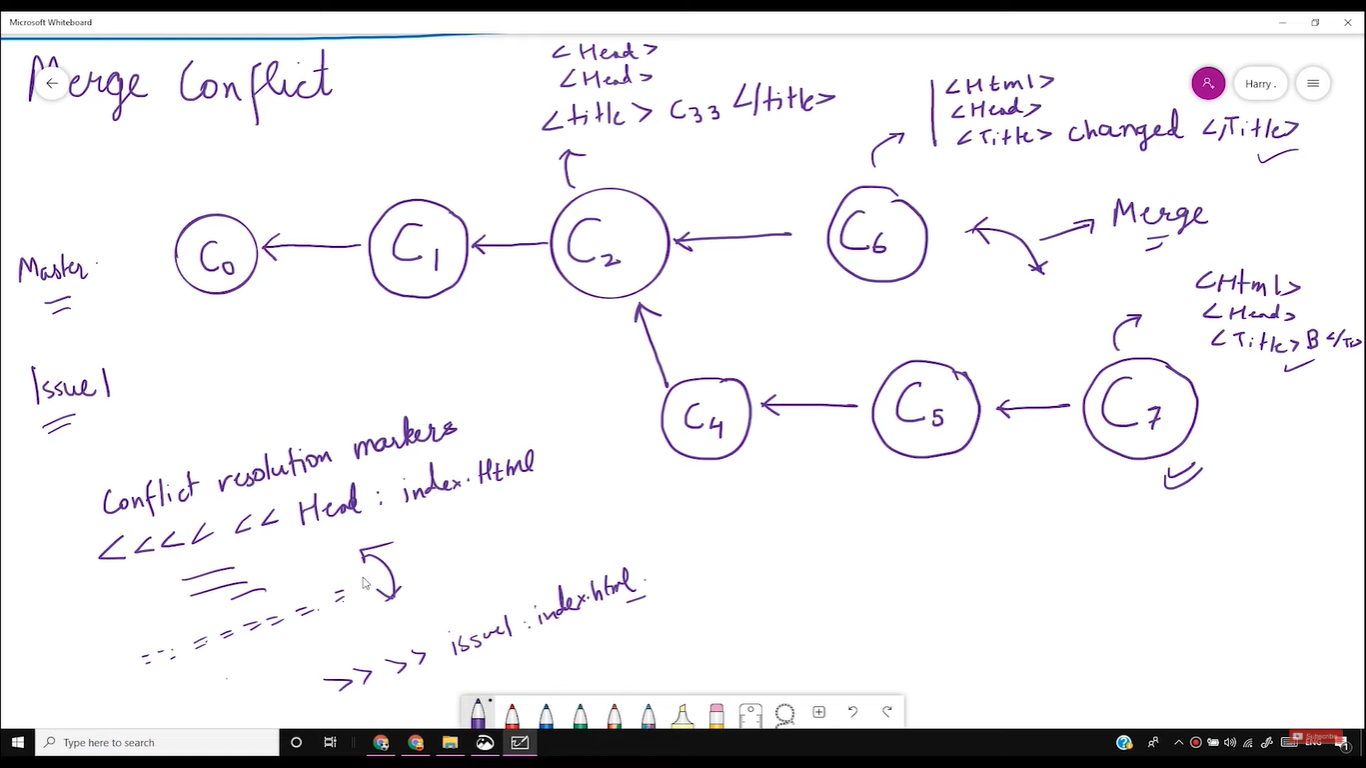 Microsoft Whiteboard
Merge Conflict
<Head>
<Head>
<title> C33 </title>
<Html>
<Head>
<Title> changed </Title>
Harry .
C0
C1
C2
C6
Merge
Master
<Html>
<Head>
<Title> B </Tit
Issue1
C4
C5
C7
Conflict resolution markers
<<<< << Head : index.Html
== = = = = = =
>> >> issue1 : index.html
Type here to search
Subscribe
ENG
1